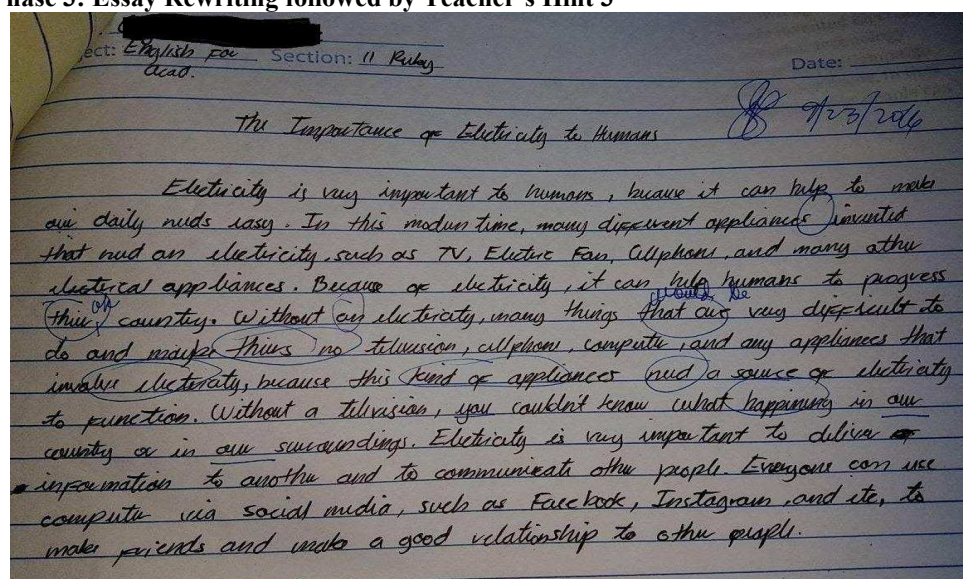 hase 3: Essay Rewriting followed by Teacher's Hint 3
ect: English For Section: 11 Ruby Date:
acad.
9/23/2016
The Importance of Electricity to Humans
Electricity is very important to humans, because it can help to make
our daily needs easy. In this modern time, many different appliances invented
that need an electricity such as TV, Electric Fan, Cellphone, and many other
electerical appliances. Because of electricity, it can help humans to progress
thier country. Without an electricaty, many things that are very difficult to
or would be
do and maybe thiers no television, cellphone, computer, and any appliances that
involve electericaty, because this kind of appliances need a source of electricity
to function. Without a television, you couldn't know what happining in our
country or in our surroundings. Electricity is very important to deliver
information to another and to communicate other people. Everyone can use
computer via social media, such as Facebook, Instagram, and etc, to
make friends and make a good relationship to other people.